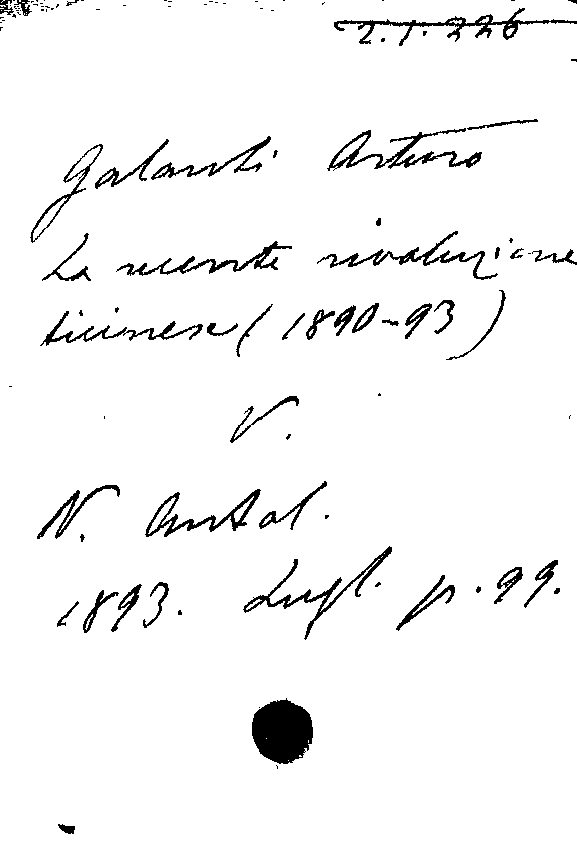 2.1.226
Galanti Arturo
La recente rivoluzione
ticinese (1890-93)
V.
N. Antol.
1893. Lugl. p. 99.